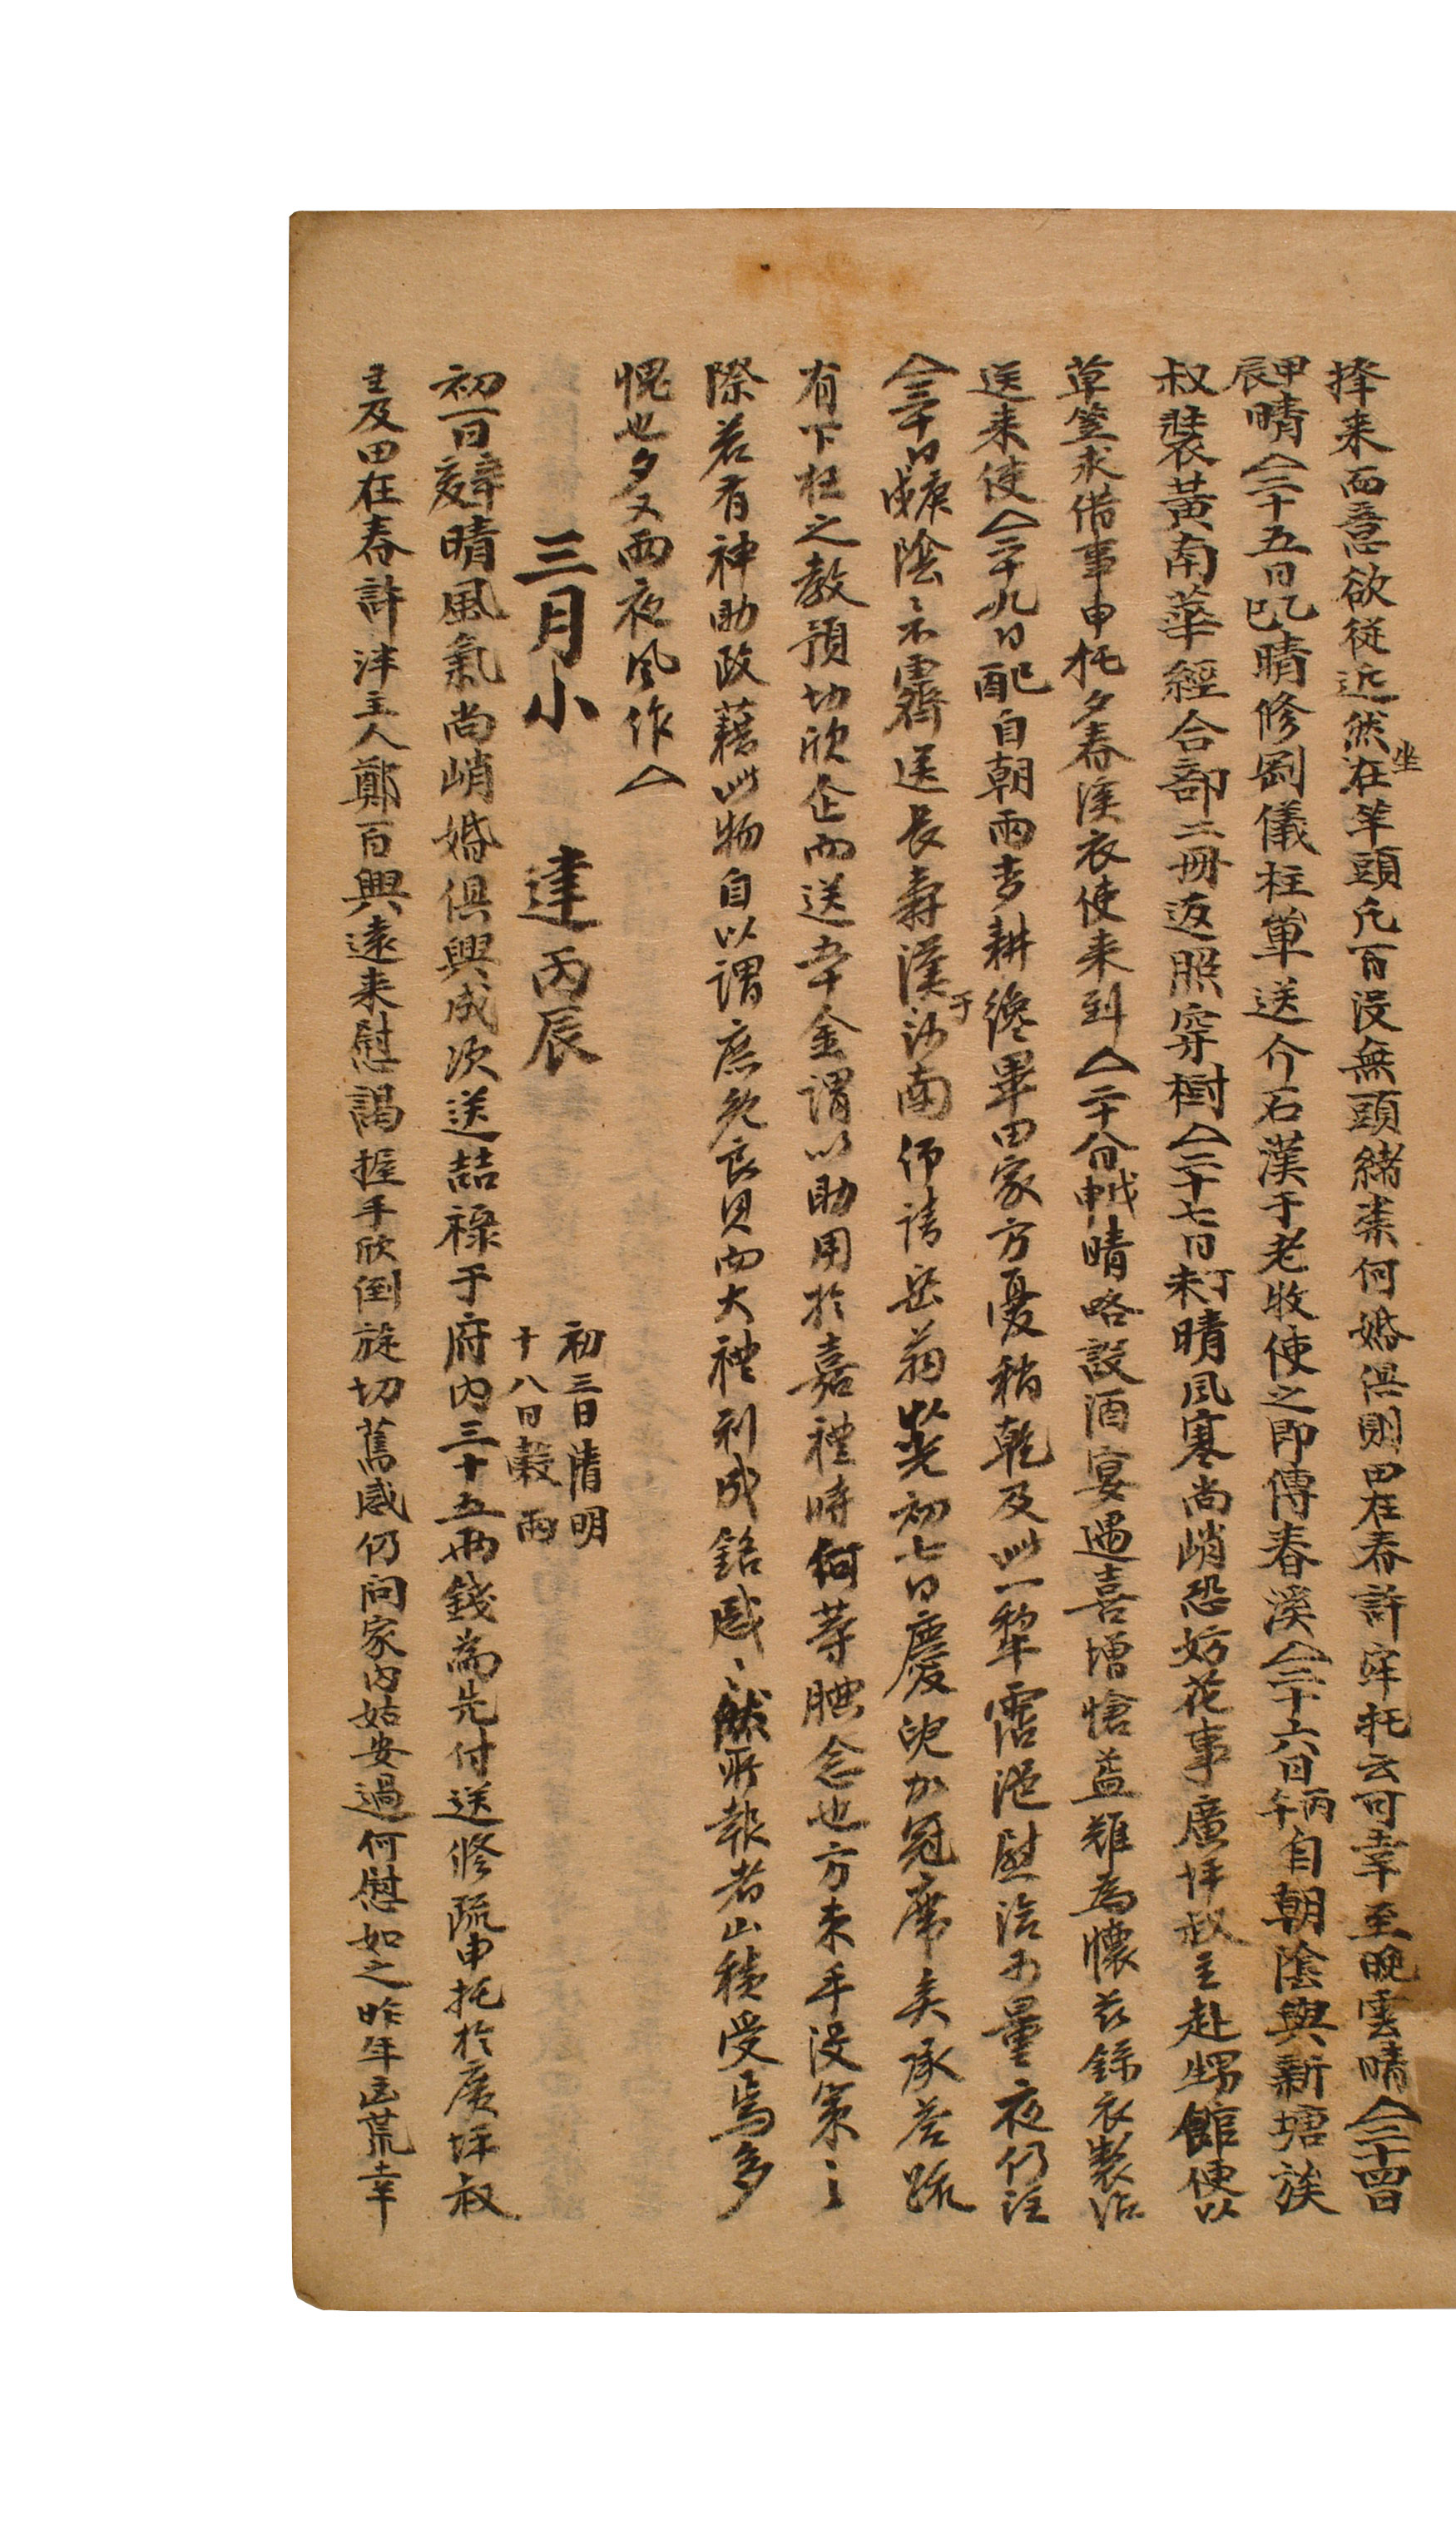 擇来而意欲從近然坐在竿頭凡百没無頭緖柰何婚俱則田在春許牢托云可幸至晩雲晴〈二十四日
甲辰晴〈二十五日乙巳晴修剛儀柱單送介石漢于老牧使之即傳春溪〈二十六日丙午自朝陰與新塘族
叔裝黃南華經合部二冊返照穿樹〈二十七日丁未晴風寒尚峭恐妨花事廣坪叔主赴甥館便以
草笠求借事申托夕春溪衣使来到〈二十八日戊申晴略設酒宴遇喜增愴益難爲懷玆錄衣製治
送来使〈二十九日己酉自朝雨麥耕纔畢田家方憂稍乾及此一犂霑浥慰洽可量夜仍注
〈三十日庚戌陰〻不霽送長壽漢于沙南仰請岳翁以光初七日慶望加冠席矣承答疏
有下枉之敎預切欣企而送五十金謂以助用於嘉禮時何等腆念也方赤手没策之
際若有神助政藉此物自以謂庶免良貝而大禮利成銘感〻然所報者山積受焉多
愧也夕又雨夜風作〈
三月小 建丙辰 初三日淸明 十八日穀雨
初一日辛亥晴風氣尚峭婚俱興成次送喆祿于府内三十五兩錢爲先付送修疏申托於廣坪叔
主及田在春許泮主人鄭百興遠来慰謁握手欣倒旋切舊感仍问家内姑安過何慰如之昨年凶荒幸